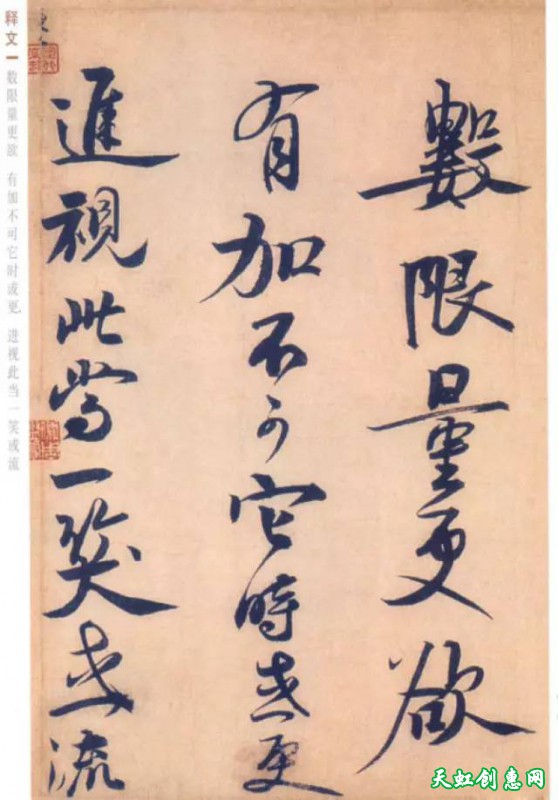 數限量更欲
有加不可它時或更
進視此當一笑或流
释文一 数限量更欲 有加不可它时或更 进视此当一笑或流
天虹创惠网